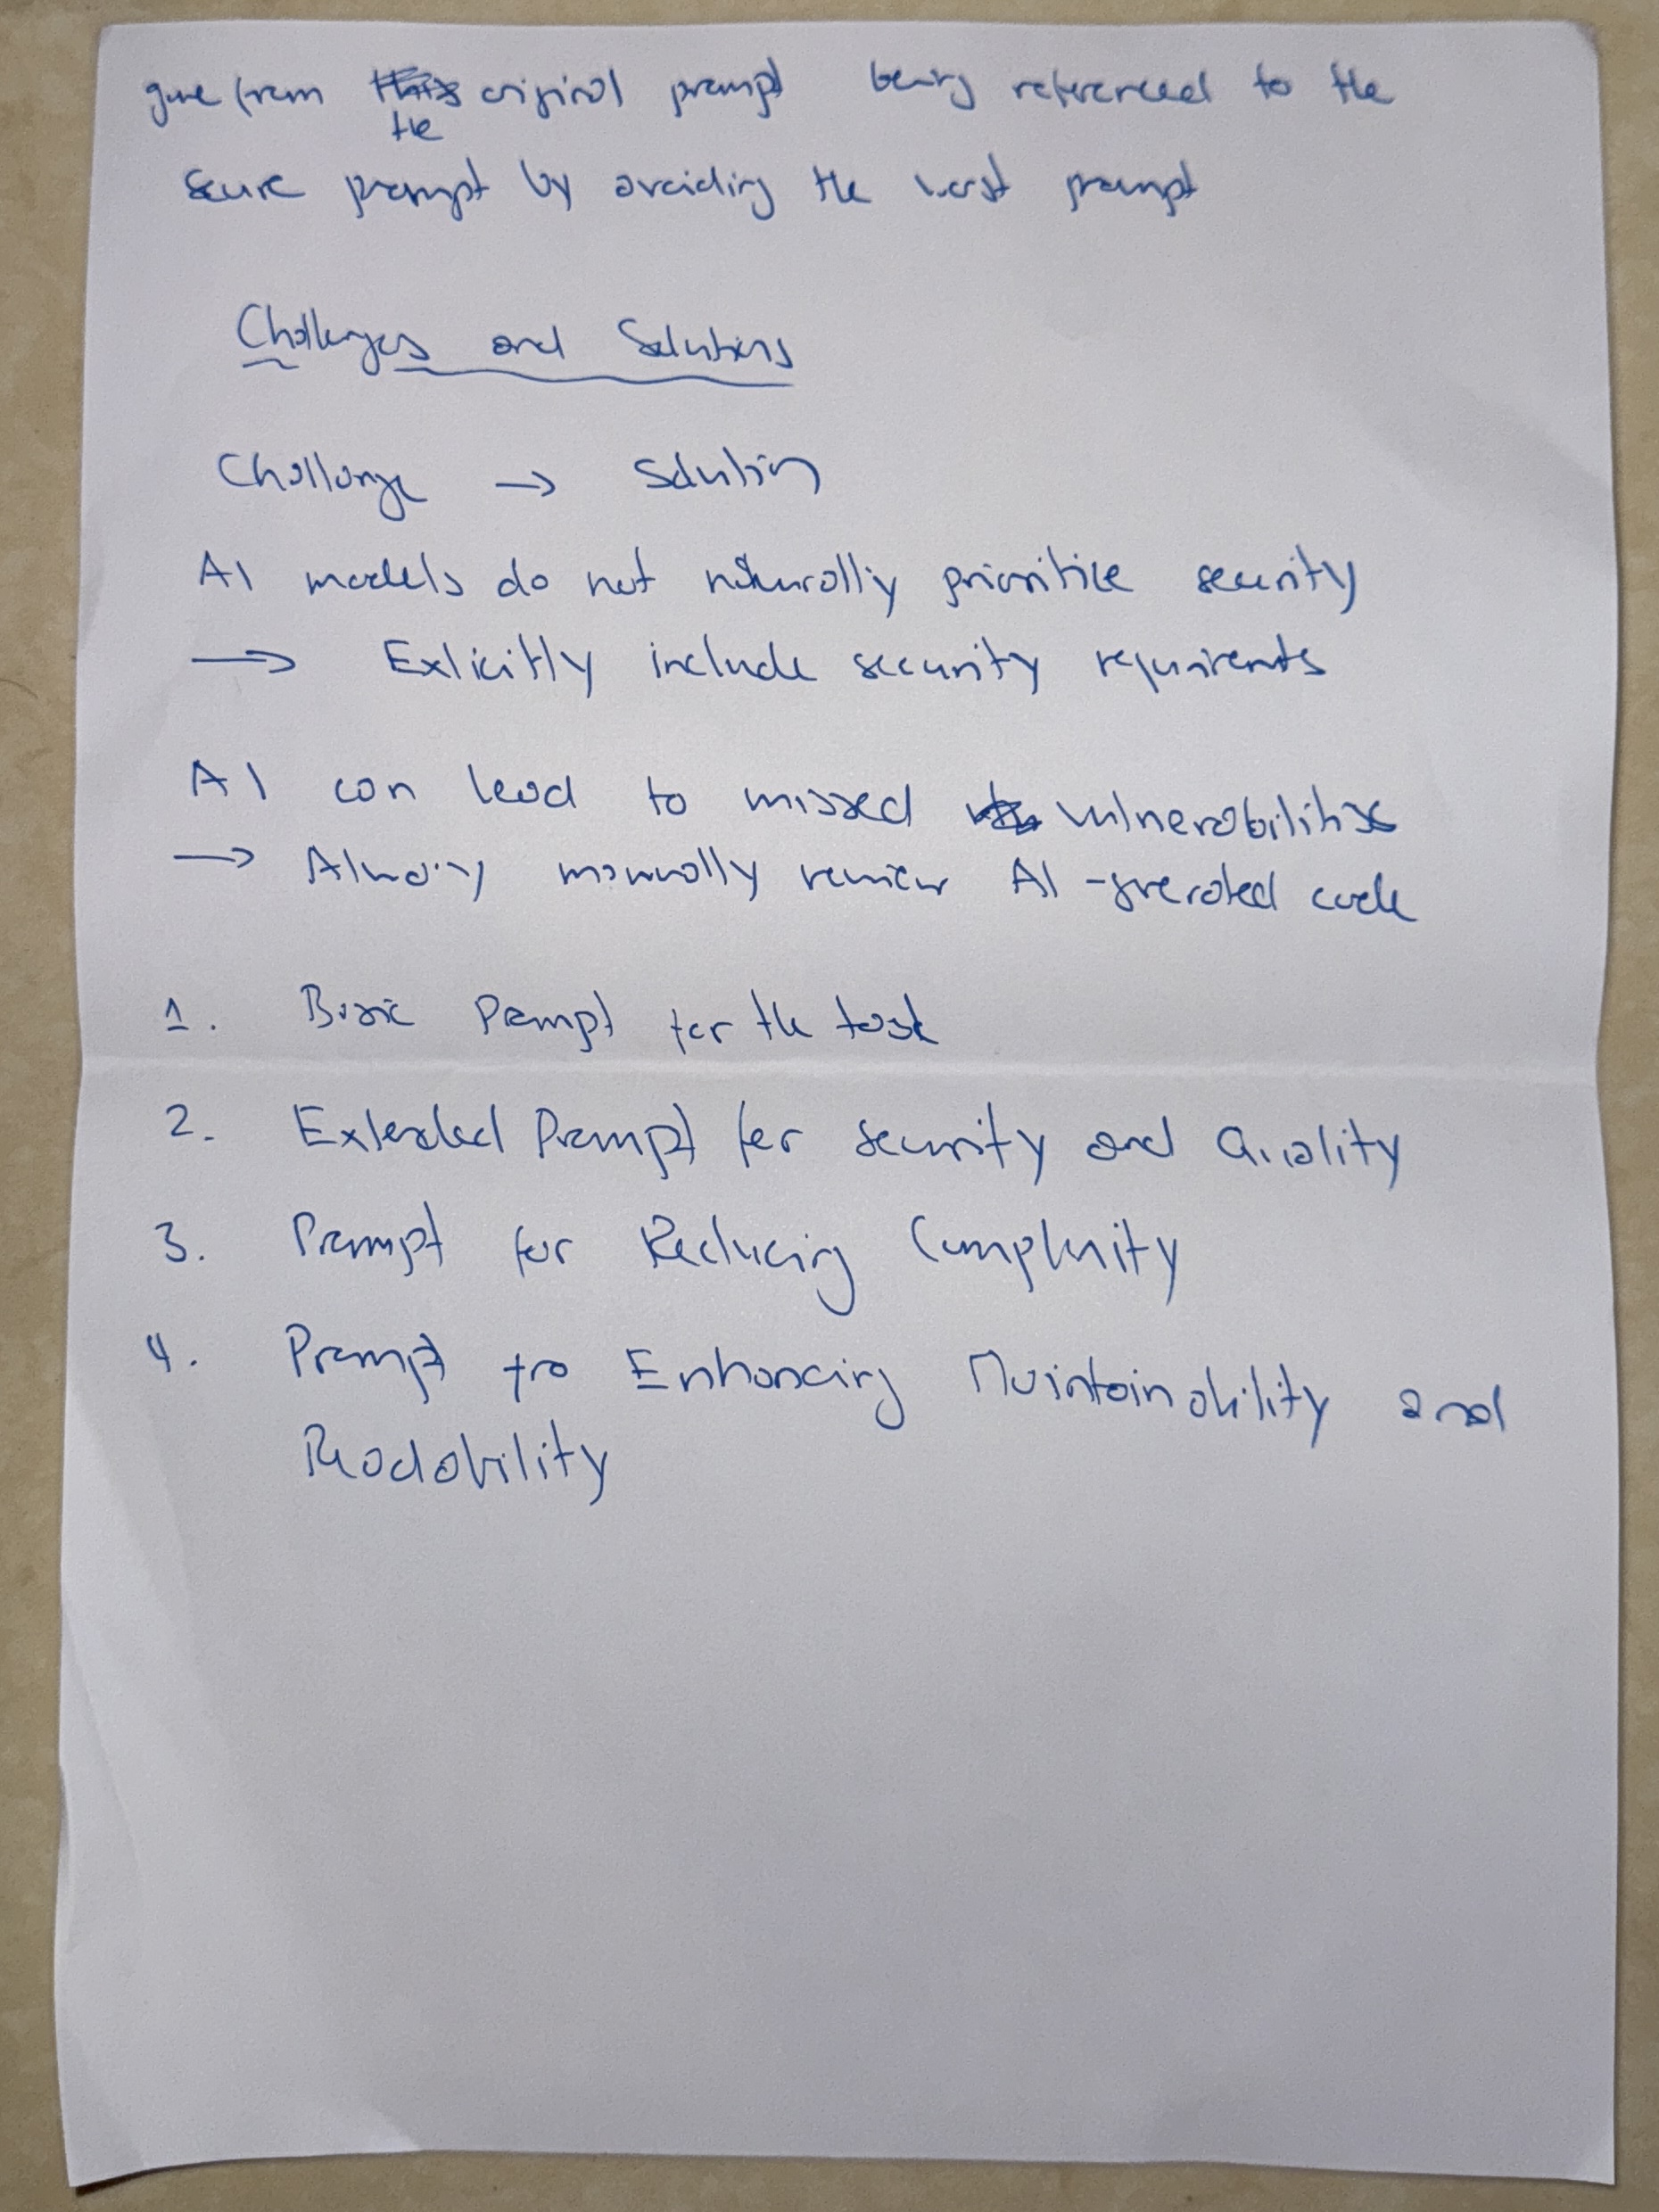 from the original prompt being referenced to the
secure prompt by avoiding the worst prompt
Challenges and Solutions
Challenge → Solution
AI models do not naturally prioritize security
→ Exlicitly include security requirents
AI can lead to missed vulnerabilities
→ Alway manually review AI-generated code
1. Basic Prompt for the task
2. Extended Prompt for security and Quality
3. Prompt for Reducing Complexity
4. Prompt fro Enhancing Maintainability and
Readability